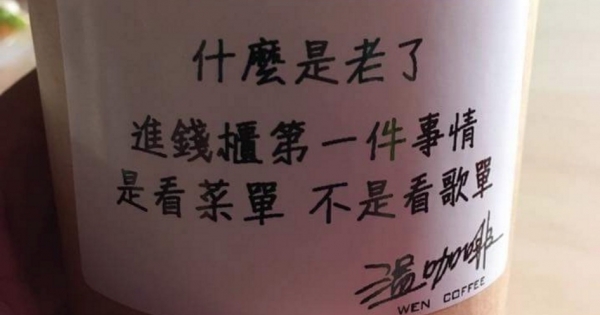 什麼是老了
進錢櫃第一件事情
是看菜單 不是看歌單
溫咖啡
WEN COFFEE